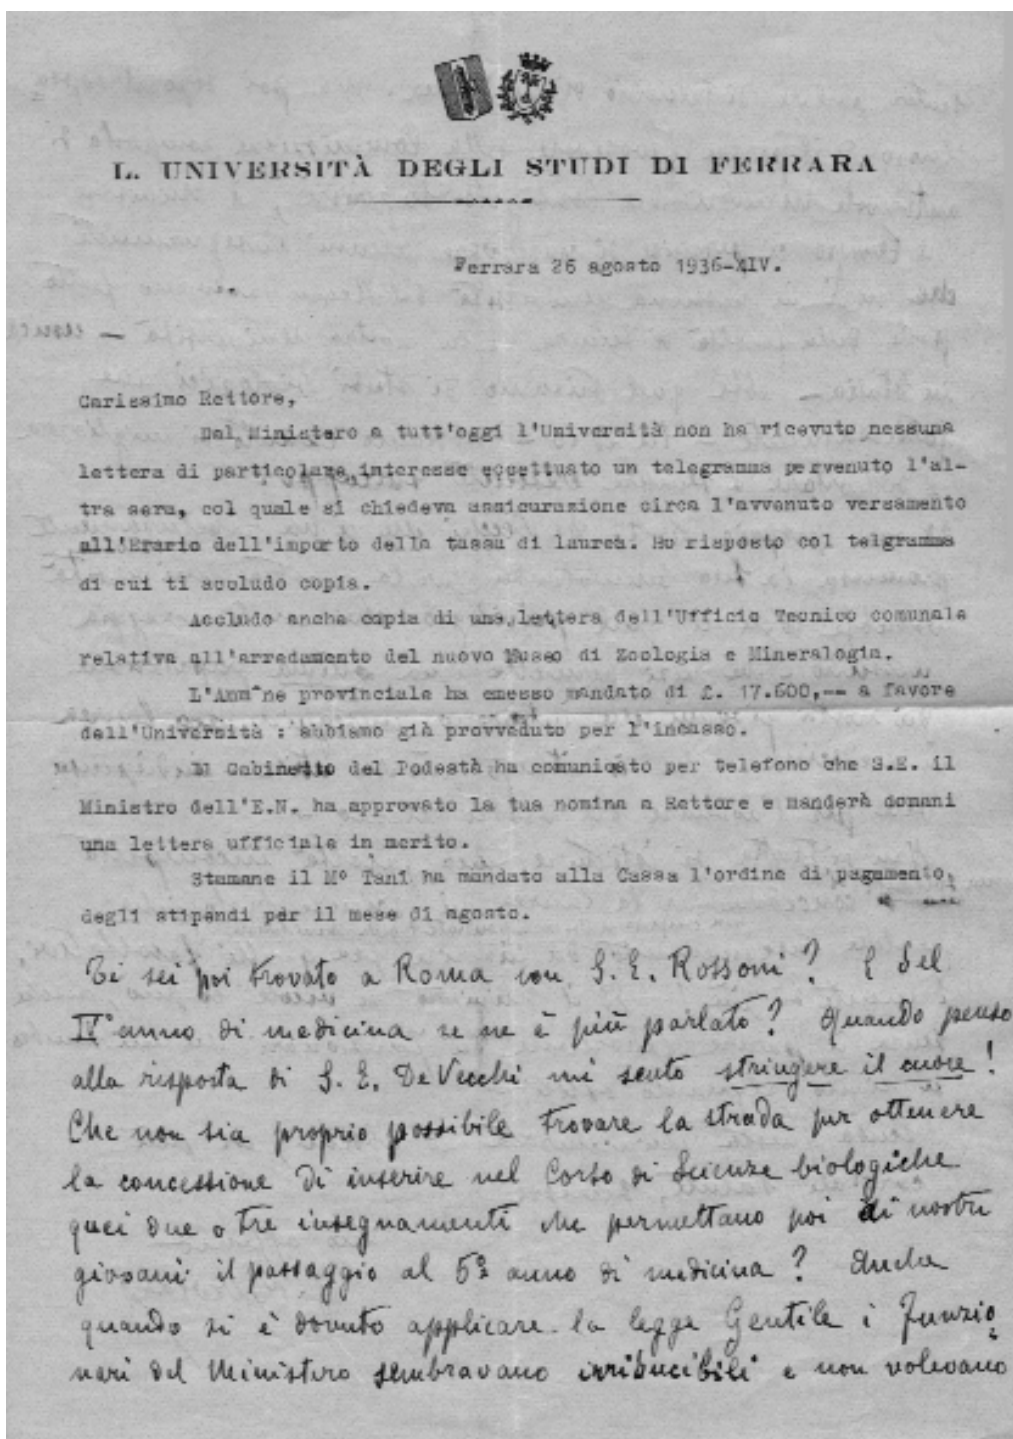 L. UNIVERSITÀ DEGLI STUDI DI FERRARA
Ferrara 26 agosto 1936-XIV.
Carissimo Rettore,
Dal Ministero a tutt'oggi l'Università non ha ricevuto nessuna
lettera di particolare interesse eccettuato un telegramma pervenuto l'al-
tra sera, col quale si chiedeva assicurazione circa l'avvenuto versamento
all'Erario dell'importo della tassa di laurea. Ho risposto col telgramma
di cui ti accludo copia.
Accludo anche copia di una lettera dell'Ufficio Tecnico comunale
relativa all'arredamento del nuovo Museo di Zoologia e Mineralogia.
L'Amm^ne provinciale ha emesso mandato di £. 17.600,-- a favore
dell'Università : abbiamo già provveduto per l'incasso.
Il Gabinetto del Podestà ha comunicato per telefono che S.E. il
Ministro dell'E.N. ha approvato la tua nomina a Rettore e manderà domani
una lettera ufficiale in merito.
Stamane il Mº Tani ha mandato alla Cassa l'ordine di pagamento
degli stipendi per il mese di agosto.
Ti sei poi trovato a Roma con S. E. Rossoni? E del
IVº anno di medicina se ne è più parlato? Quando penso
alla risposta di S. E. De Vecchi mi sento stringere il cuore!
Che non sia proprio possibile trovare la strada per ottenere
la concessione di inserire nel Corso di Scienze biologiche
quei due o tre insegnamenti che permettano poi ai nostri
giovani il passaggio al 5º anno di medicina? Anche
quando si è dovuto applicare la legge Gentile i funzio
nari del Ministero sembravano irriducibili e non volevano